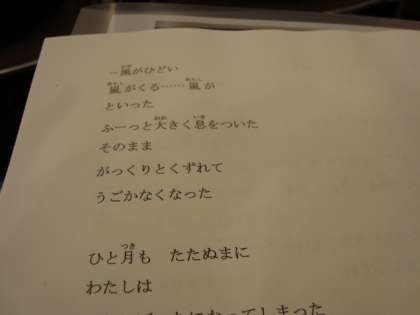 ―風がひどい
嵐がくる……嵐が
といった
ふーっと大きく息をついた
そのまま
がっくりとくずれて
うごかなくなった
ひと月も　たたぬまに
わたしは
になってしまった